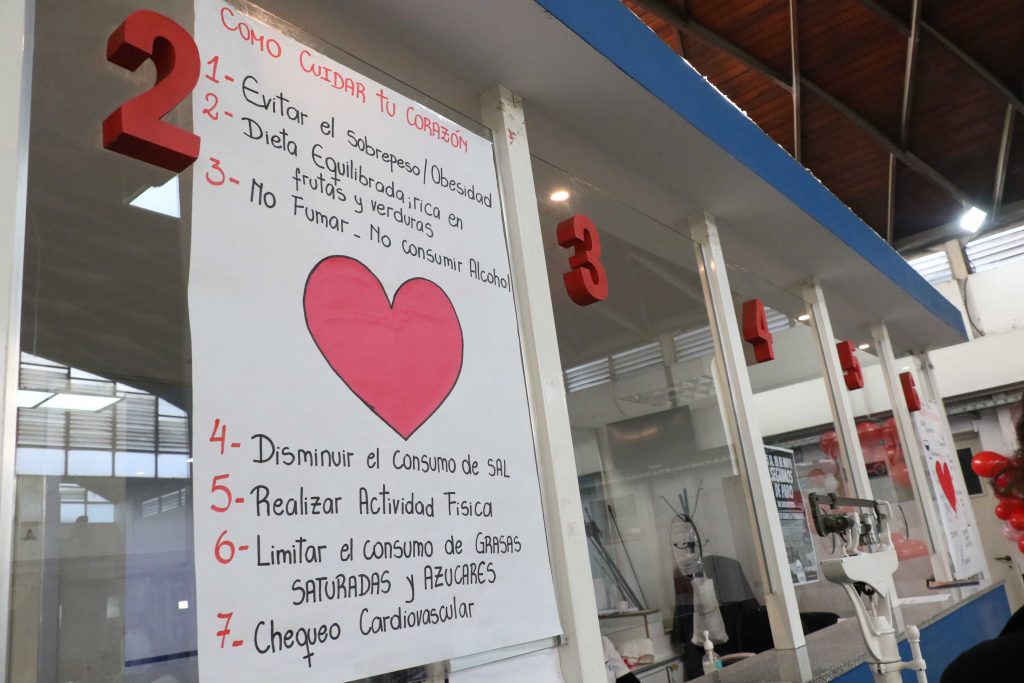 2
COMO CUIDAR tU CORAZÓN
1- Evitar el Sobrepeso/Obesidad
2- Dieta Equilibrada; rica en
frutas y verduras
3- No Fumar - No consumir Alcohol
4- Disminuir el consumo de SAL
5- Realizar Actividad Física
6- Limitar el consumo de GRASAS
SATURADAS y AZUCARES
7- Chequeo Cardiovascular
3
4
5
6
SEGUIMOS
DE PARO